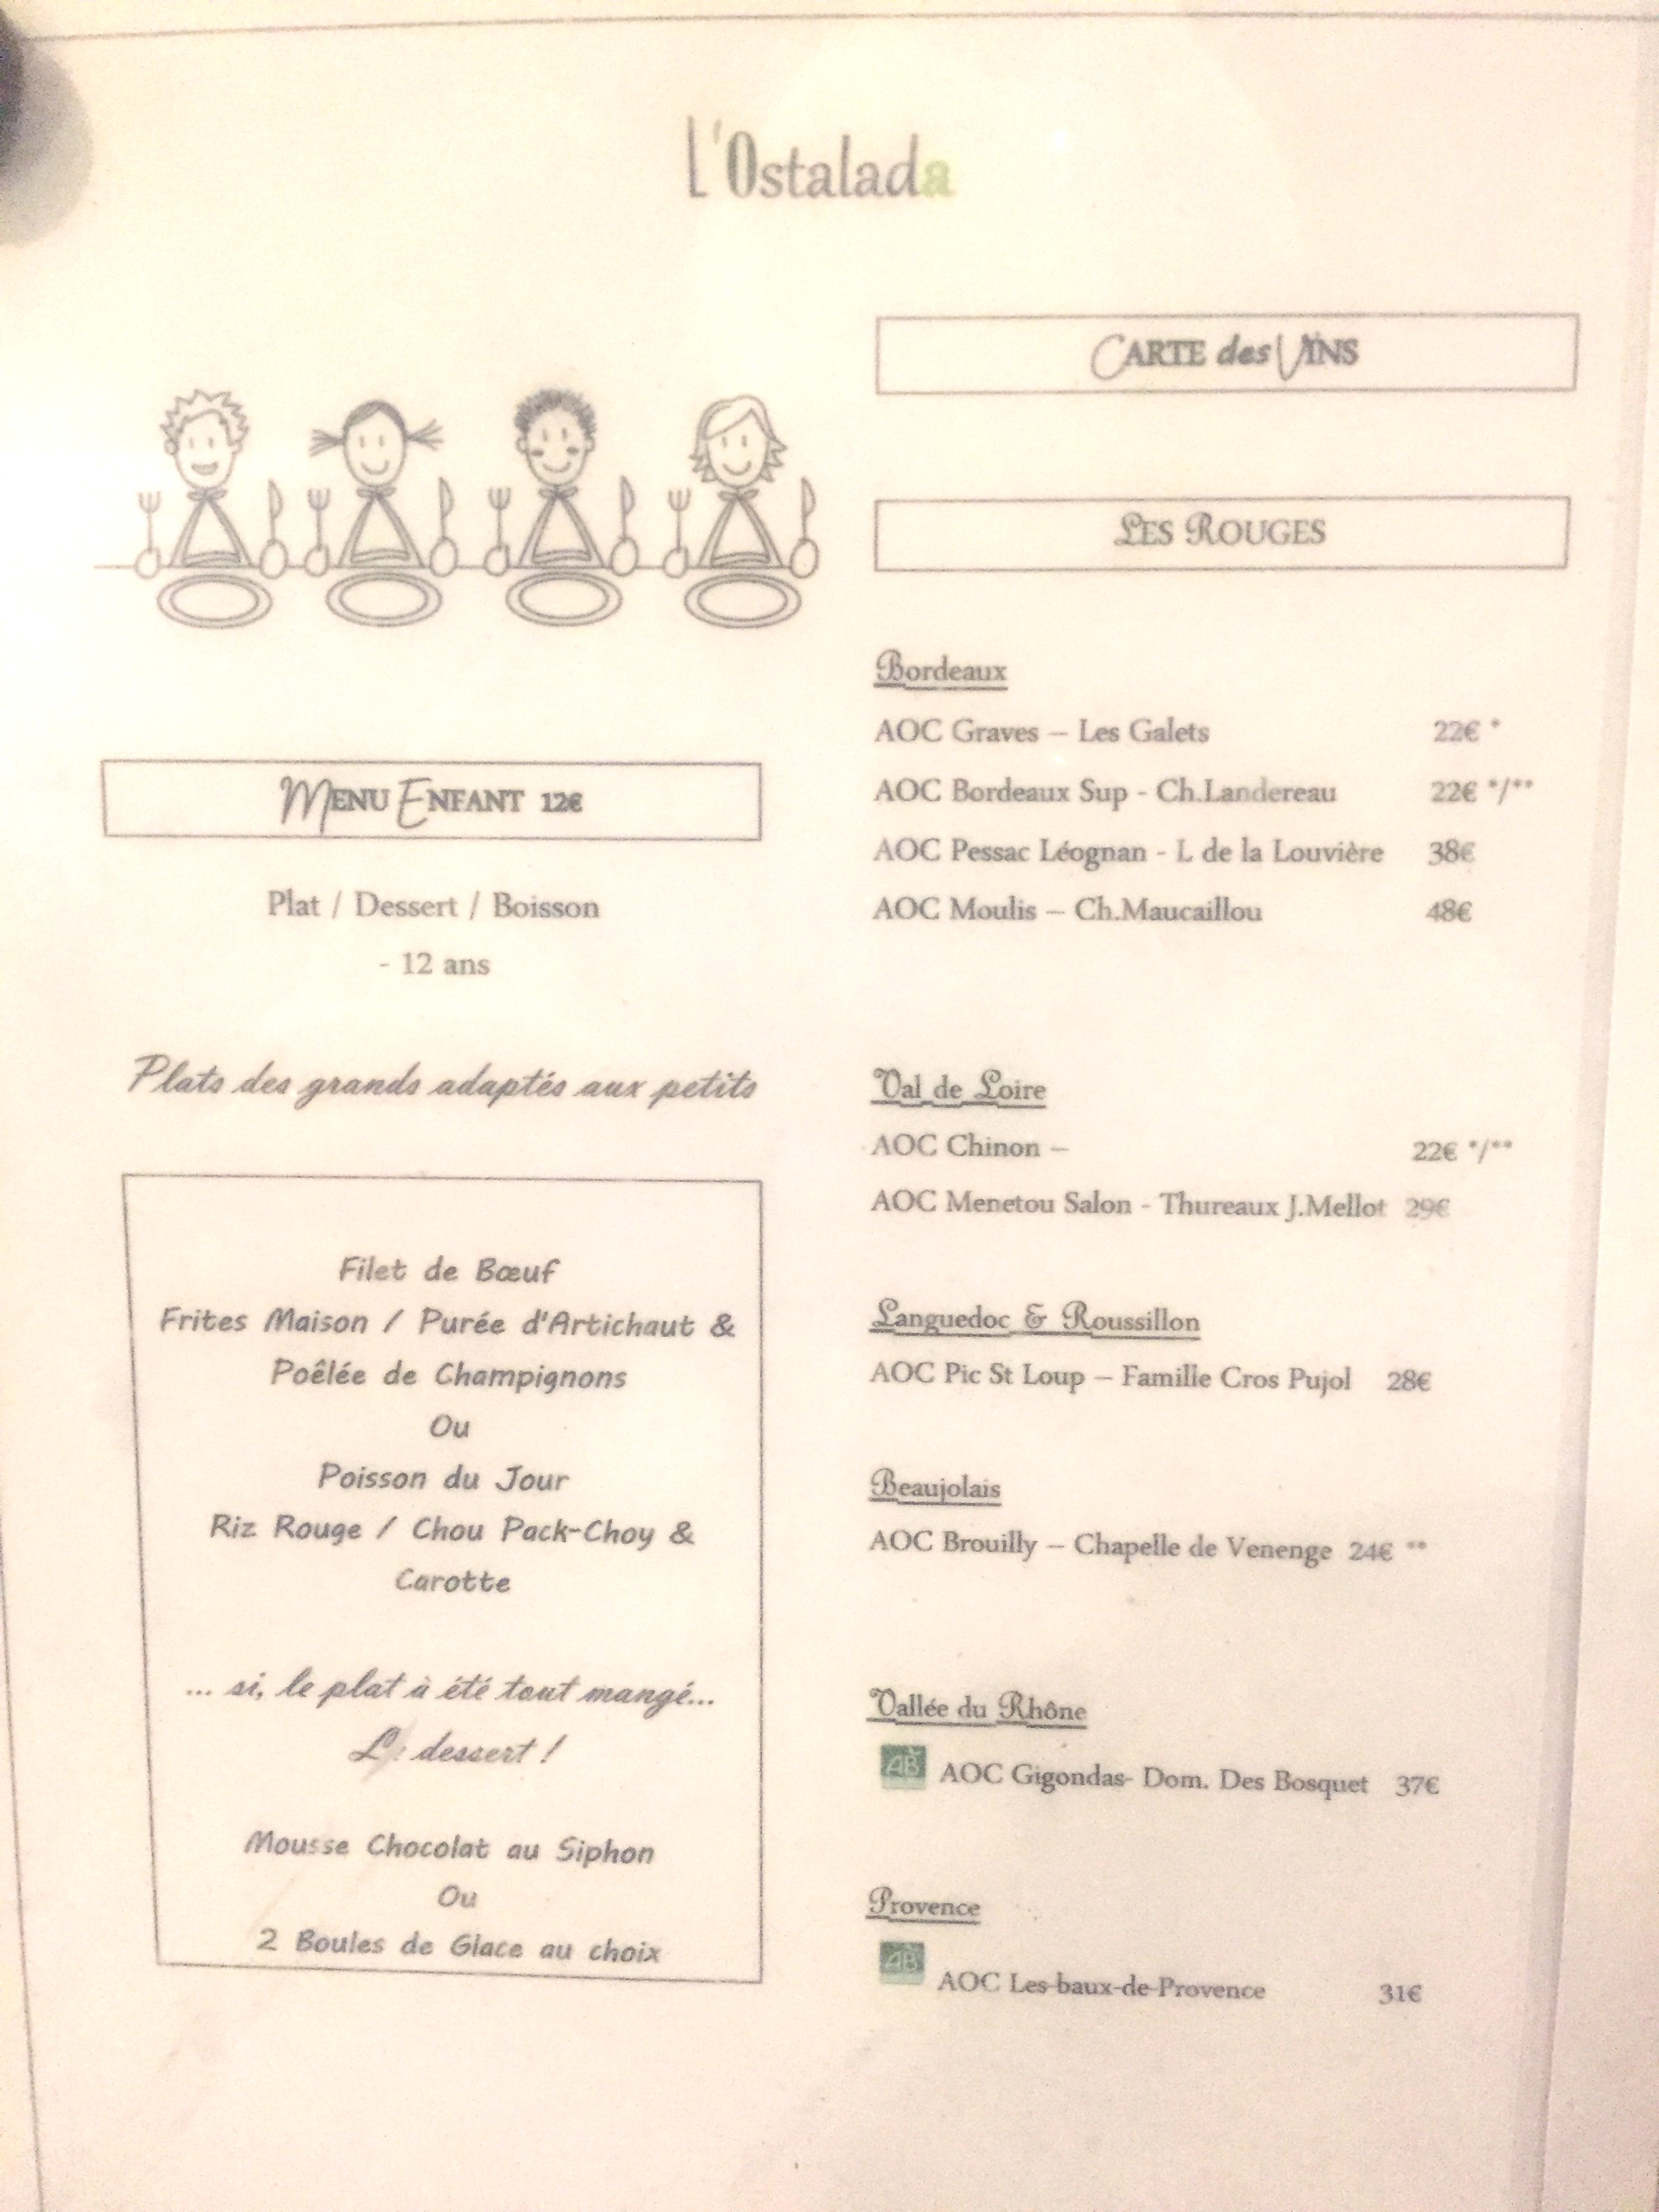 L'Ostalada
MENU ENFANT 12€
Plat / Dessert / Boisson
- 12 ans
Plats des grands adaptés aux petits
Filet de Bœuf
Frites Maison / Purée d'Artichaut &
Poêlée de Champignons
Ou
Poisson du Jour
Riz Rouge / Chou Pack-Choy &
Carotte
... si, le plat à été tout mangé...
Le dessert !
Mousse Chocolat au Siphon
Ou
2 Boules de Glace au choix
CARTE des VINS
LES ROUGES
Bordeaux
AOC Graves – Les Galets 22€ *
AOC Bordeaux Sup - Ch.Landereau 22€ */**
AOC Pessac Léognan - L de la Louvière 38€
AOC Moulis – Ch.Maucaillou 48€
Val de Loire
AOC Chinon – 22€ */**
AOC Menetou Salon - Thureaux J.Mellot 29€
Languedoc & Roussillon
AOC Pic St Loup – Famille Cros Pujol 28€
Beaujolais
AOC Brouilly – Chapelle de Venenge 24€ **
Vallée du Rhône
AB AOC Gigondas- Dom. Des Bosquet 37€
Provence
AB AOC Les-baux-de-Provence 31€